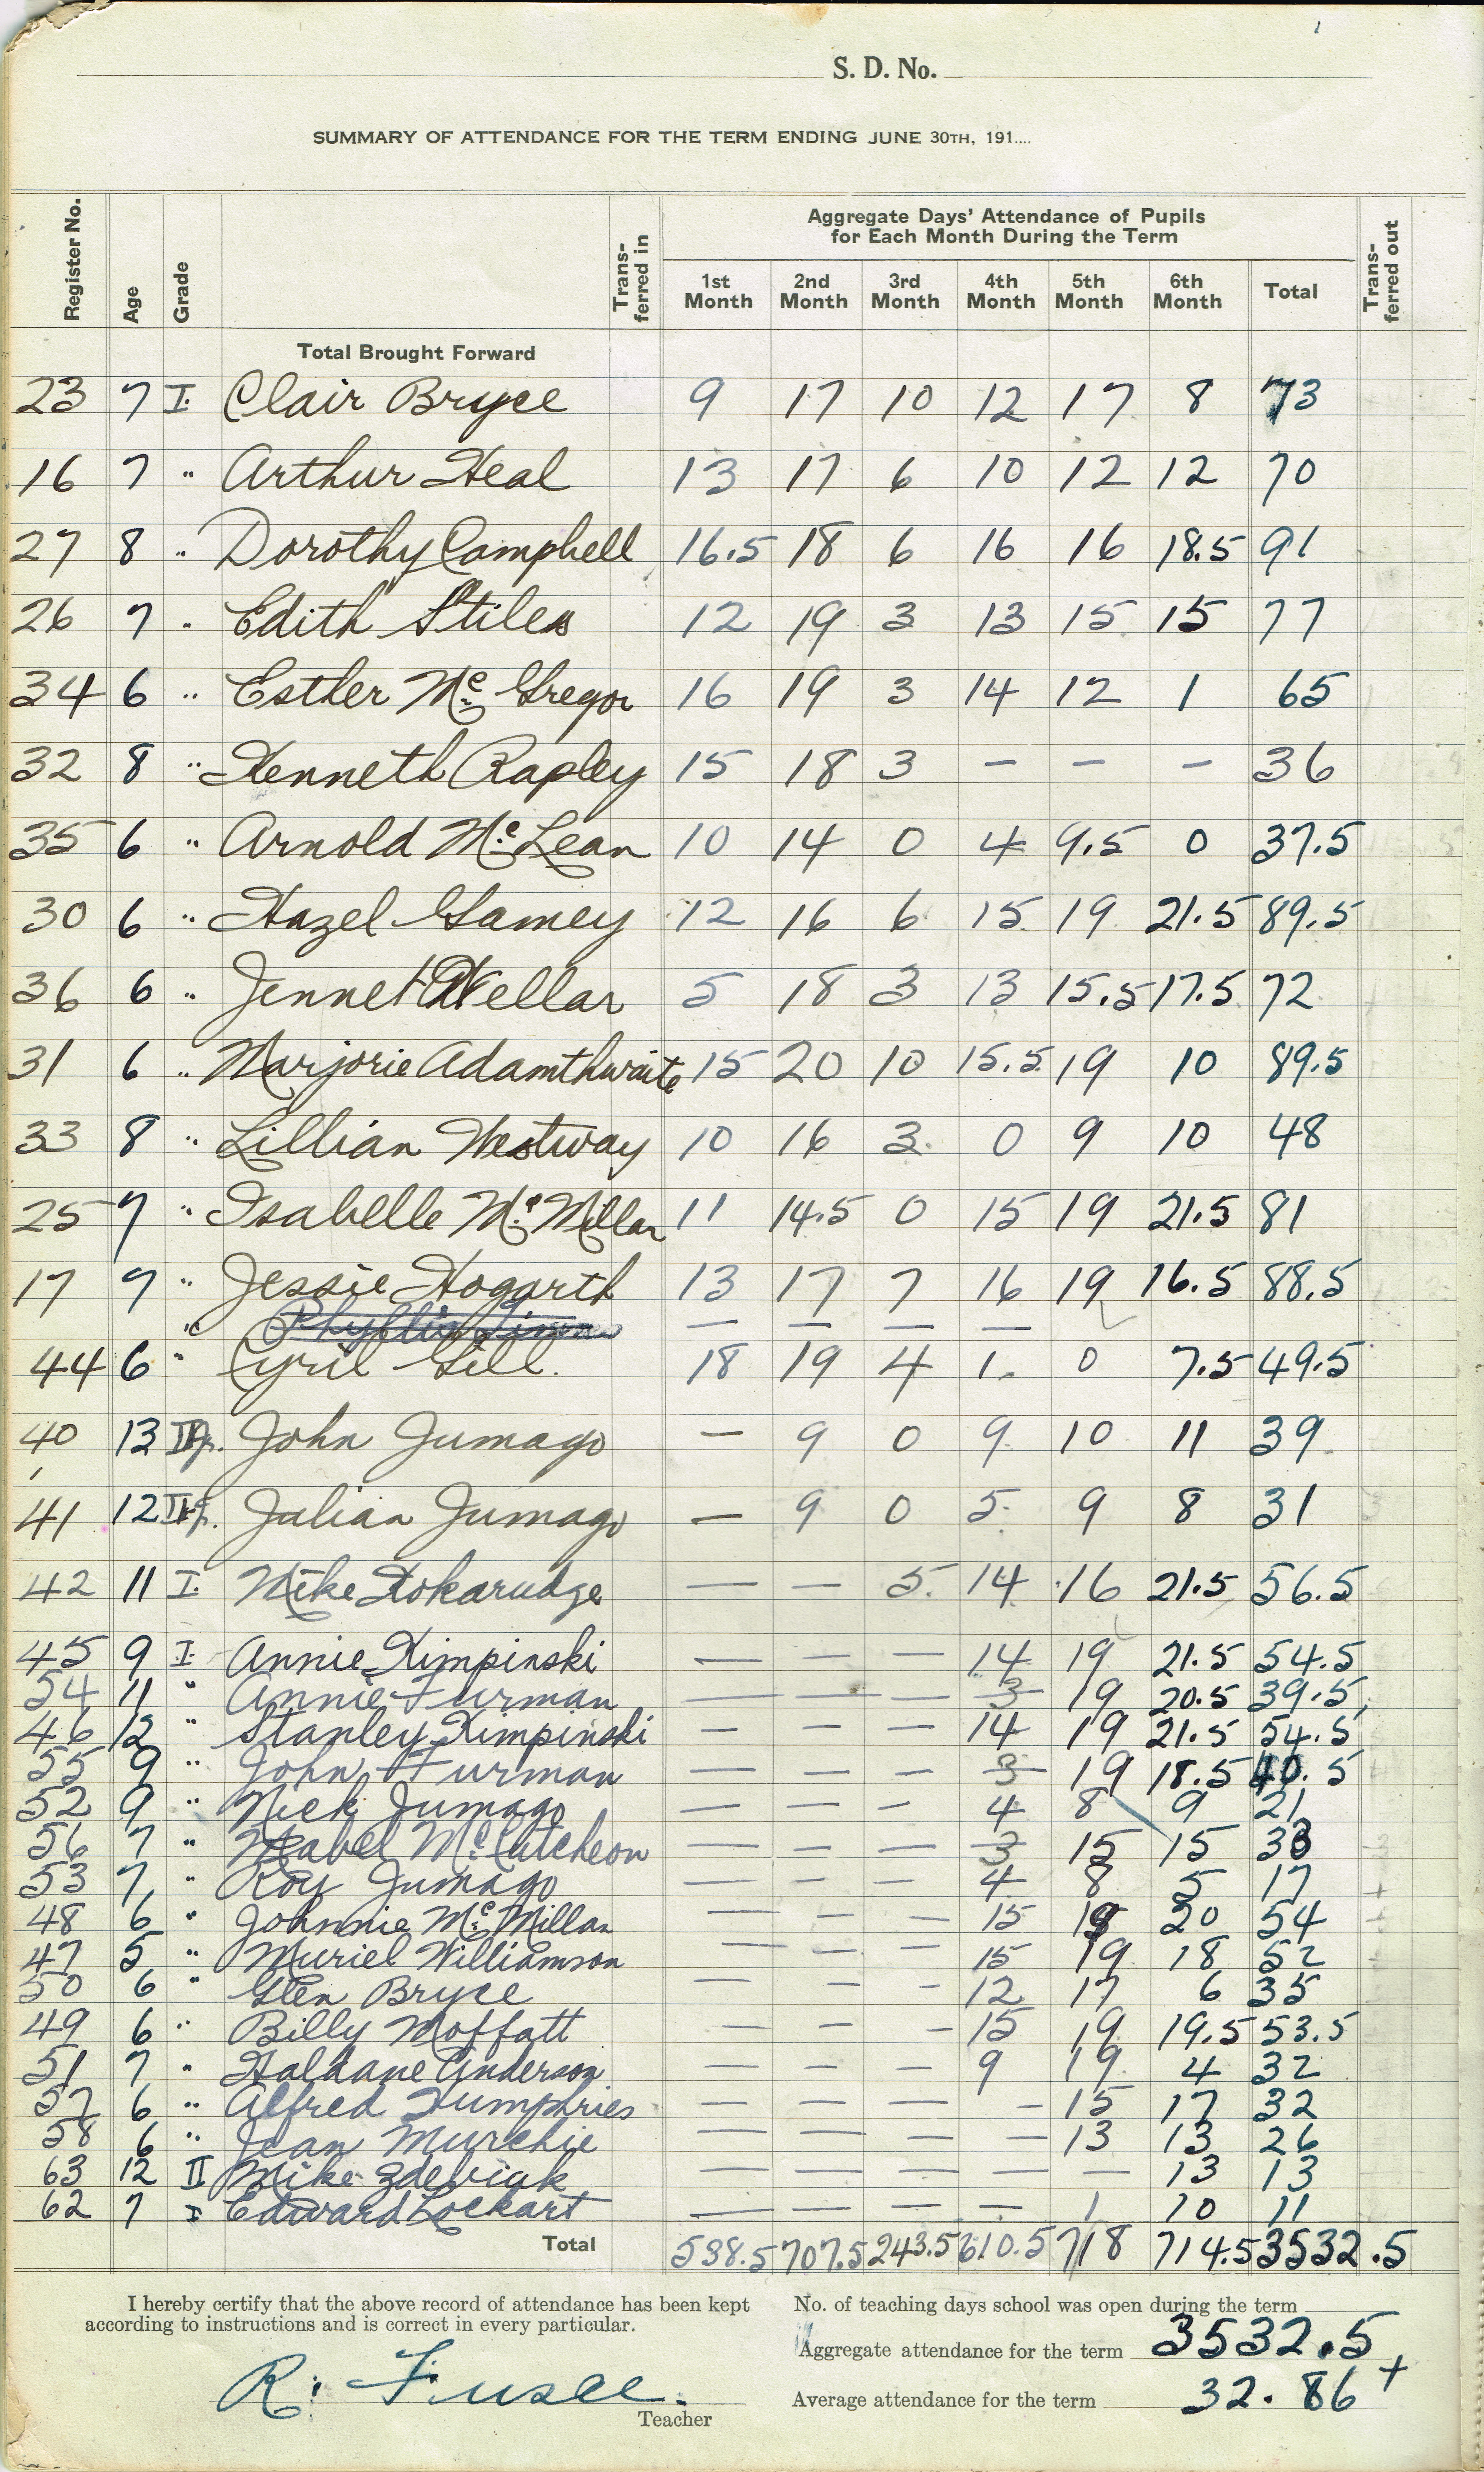 S. D. No.
SUMMARY OF ATTENDANCE FOR THE TERM ENDING JUNE 30TH, 191....
Register No. Age Grade Trans-ferred in Aggregate Days' Attendance of Pupils for Each Month During the Term Trans-ferred out
1st Month 2nd Month 3rd Month 4th Month 5th Month 6th Month Total
Total Brought Forward
23 7 I. Clair Bryce 9 17 10 12 17 8 73
16 7 " Arthur Heal 13 17 6 10 12 12 70
27 8 " Dorothy Campbell 16.5 18 6 16 16 18.5 91
26 7 " Edith Stiles 12 19 3 13 15 15 77
34 6 " Esther Mc Gregor 16 19 3 14 12 1 65
32 8 " Kenneth Rapley 15 18 3 – – – 36
35 6 " Arnold McLean 10 14 0 4 9.5 0 37.5
30 6 " Hazel Gamey 12 16 6 15 19 21.5 89.5
36 6 " Jennet Kellar 5 18 3 13 15.5 17.5 72
31 6 " Marjorie Adamthwaite 15 20 10 15.5 19 10 89.5
33 8 " Lillian Westway 10 16 3 0 9 10 48
25 7 " Isabelle McMillan 11 14.5 0 15 19 21.5 81
17 7 " Jessie Hogarth 13 17 7 16 19 16.5 88.5
" Phyllis — — — —
44 6 " Cyril Gill. 18 19 4 1. 0 7.5 49.5
40 13 John Jumago – 9 0 9 10 11 39
41 12 Julian Jumago – 9 0 5 9 8 31
42 11 I. Mike Kokarudge — — 5 14 16 21.5 56.5
45 9 I. Annie Kimpinski — — — 14 19 21.5 54.5
54 11 " Annie Furman — — — 3 19 20.5 39.5
46 12 " Stanley Kimpinski — — — 14 19 21.5 54.5
55 9 " John Furman — — — 3 19 18.5 40.5
52 9 " Nick Jumago — — — 4 8 9 21
56 7 " Mabel McCutcheon — — — 3 15 15 33
53 7 " Roy Jumago — — — 4 8 5 17
48 6 " Johnnie McMillan — — — 15 19 20 54
47 5 " Muriel Williamson — — — 15 19 18 52
50 6 " Glen Bryce — — — 12 17 6 35
49 6 " Billy Moffatt — — — 15 19 19.5 53.5
51 7 " Haldane Anderson — — — 9 19 4 32
57 6 " Alfred Humphries — — — – 15 17 32
58 6 " Jean Murchie — — — — 13 13 26
63 12 II Mike — — — — — 13 13
62 7 I Edward Lockart — — — — 1 10 11
Total 538.5 707.5 243.5 610.5 718 714.5 3532.5
I hereby certify that the above record of attendance has been kept according to instructions and is correct in every particular.
No. of teaching days school was open during the term
Aggregate attendance for the term 3532.5
Average attendance for the term 32.86+
R. Fusee.
Teacher